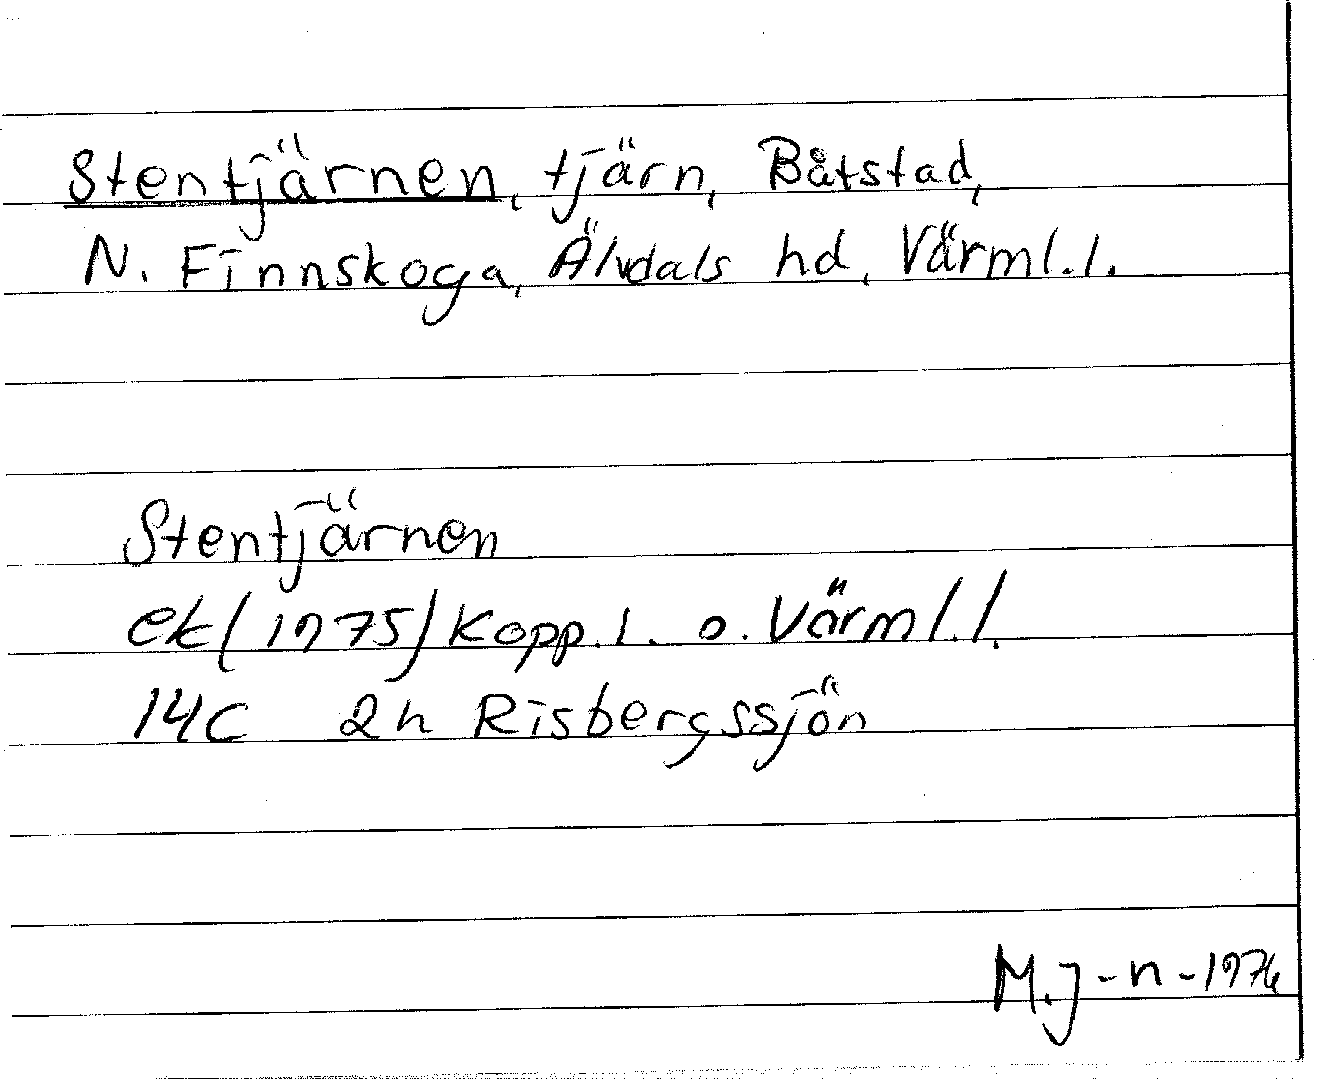 Stentjärnen, tjärn, Båtstad,
N. Finnskoga, Älvdals hd, Värml.l.
Stentjärnen
ek(1975) Kopp.l. o. Värml.l.
14C 2h Risbergssjön
M.J-n-1976